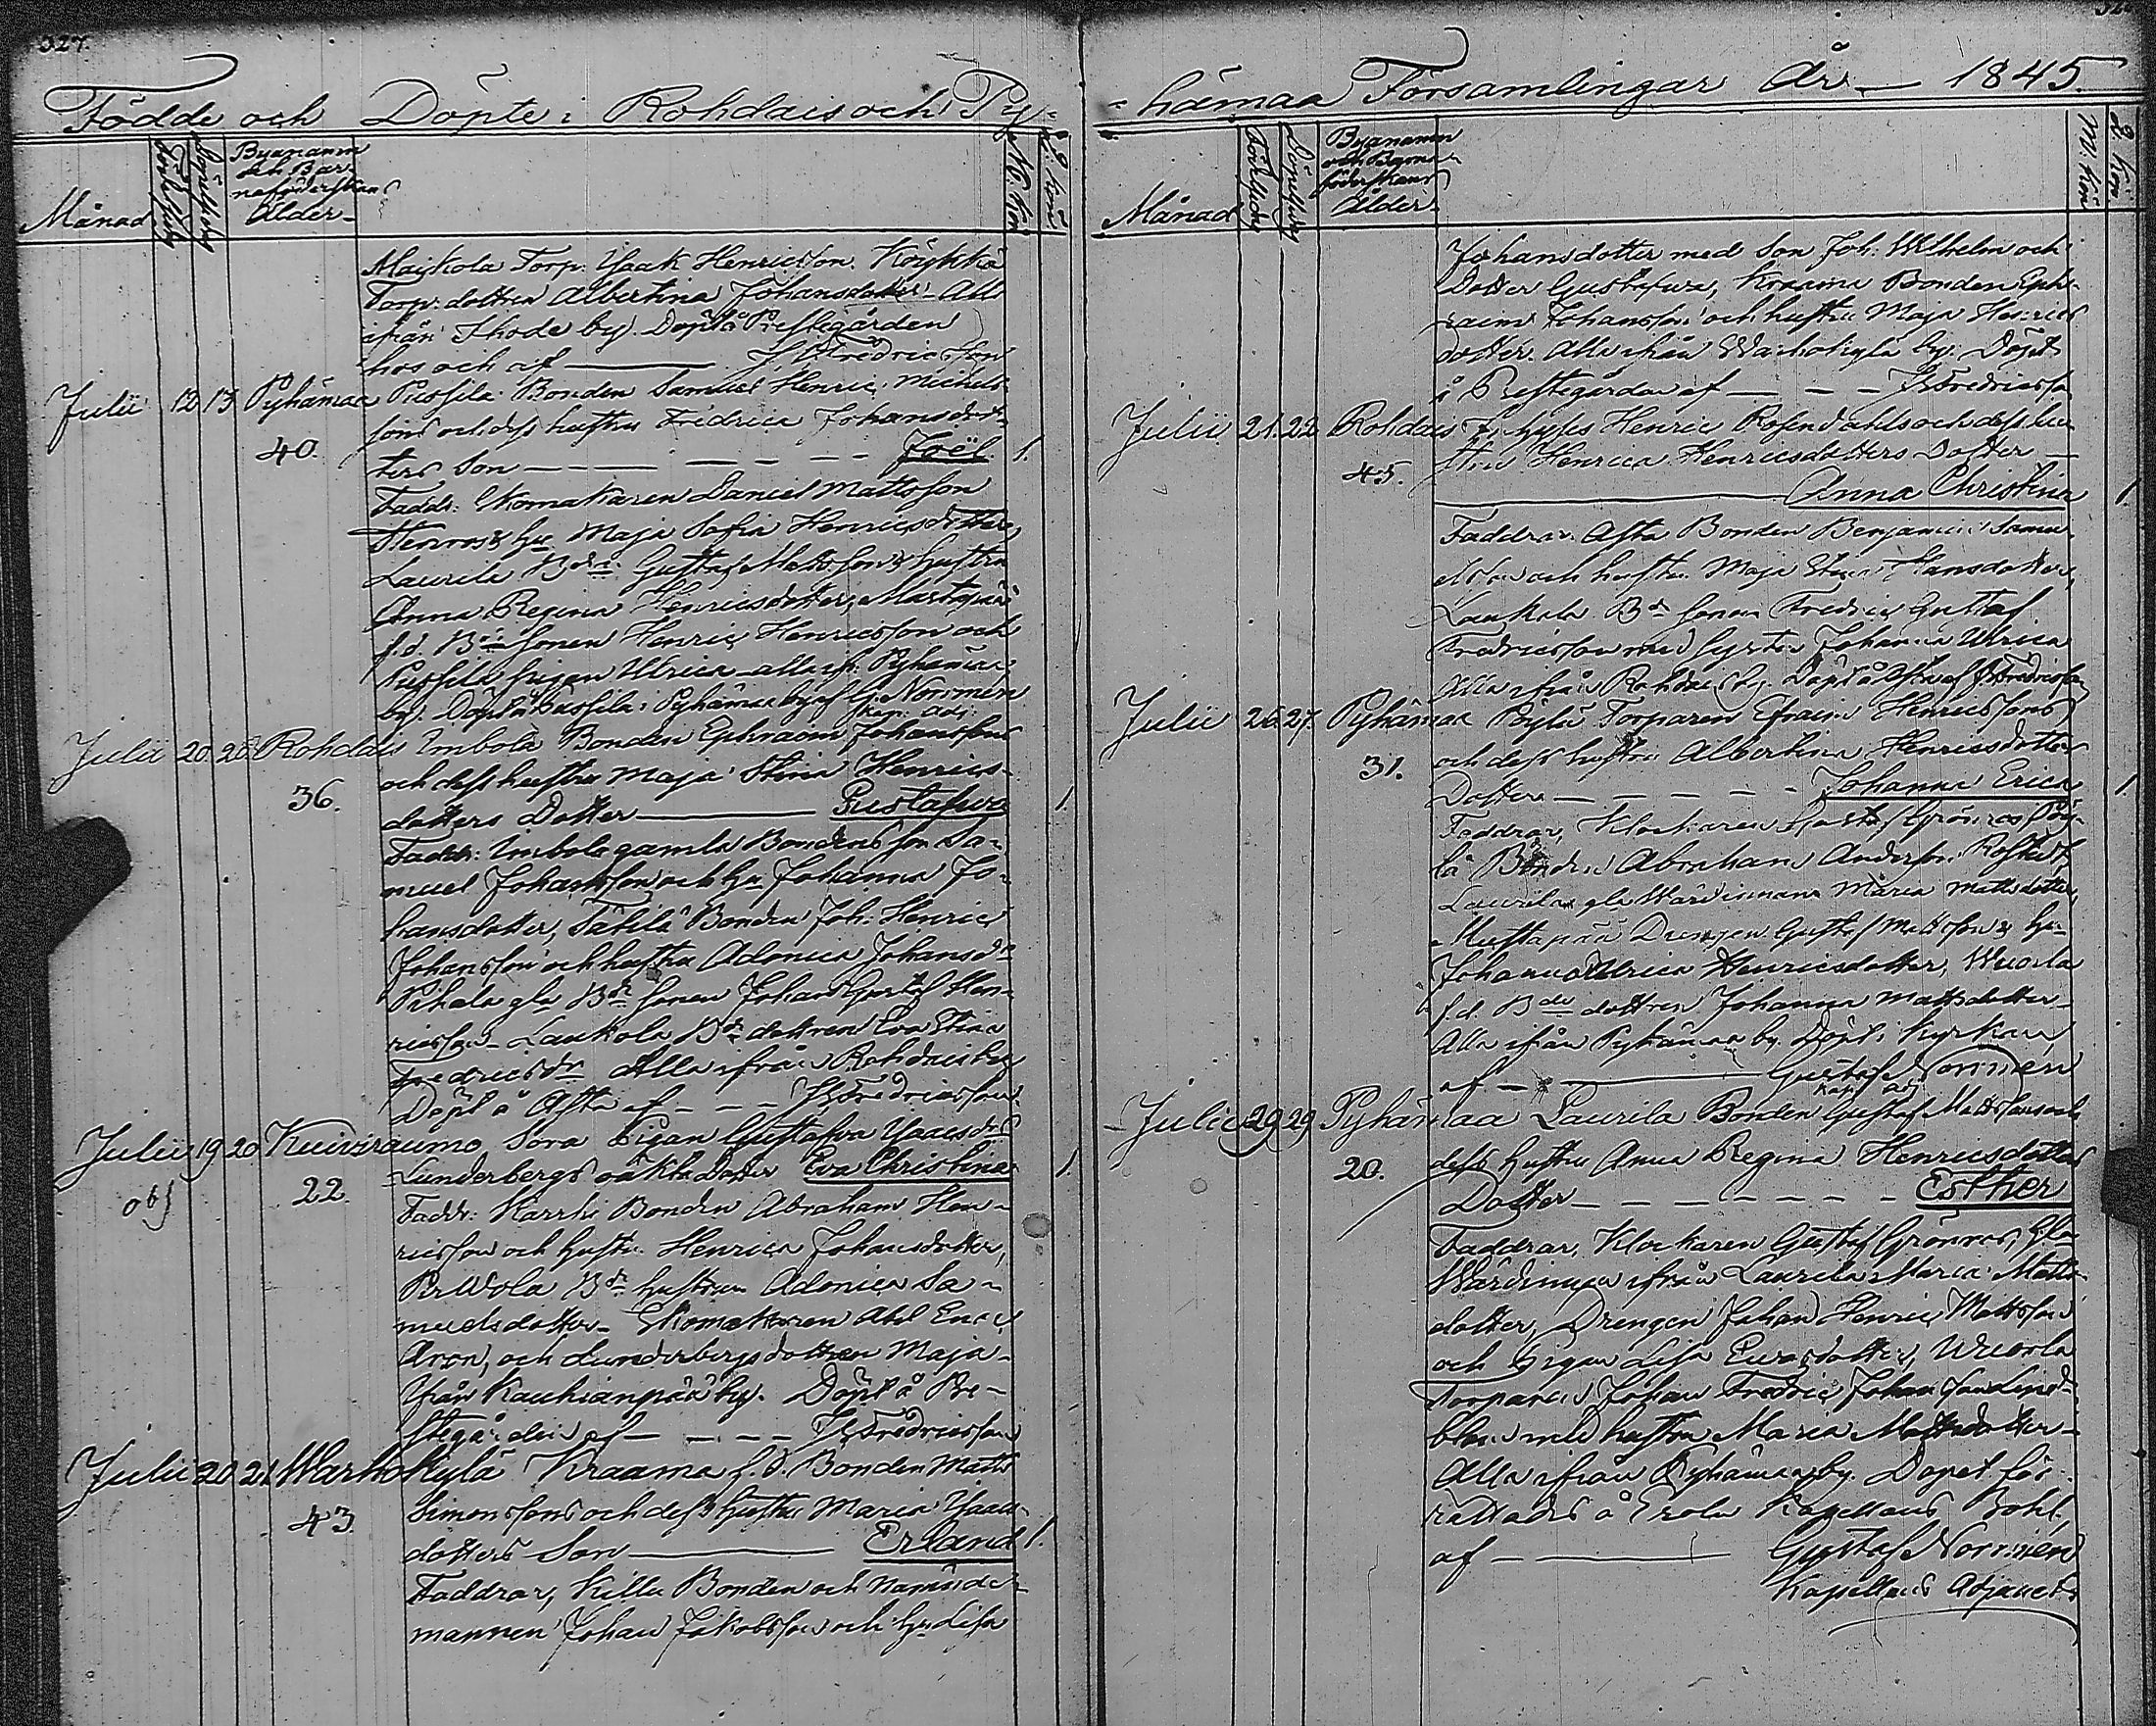 327.
Födde och Döpte i Rohdais och Py-
Månad
Födelsedag
Döpelsedag
Byanamn och Barnaföderskans Ålder
M. Kön
Q. Kön
Maijkola Torp. Isaak Henricsson. Köijkkä
Torp. dottren Albertina Johansdotter. Alle
ifrån Ihode by. Döpt å Prestegården
hos och af — Fredricsson
Julii 12 13 Pyhämaa Pussila Bonden Samuel Henric Michels-
40. sons och dess hustru Fredrica Johansdot-
ters Son — Joël 1.
Faddr: Skomakaren Daniel Mattsson
Stenroos & hu Maja Sofia Henricsdotter,
Laurila Bdn Gustaf Mattsson & hustru
Anna Regina Henricsdotter, Mastapää
f.d. Bds sonen Henric Henricsson och
Pussila pigan Ulrica alla ifr. Pyhämaa
by. Döpt å Pussila i Pyhämaa by af G. Norrmén
Kap: Adj:
Julii 20 20 Rohdais Imbola Bonden Ephraim Johanssons
36. och dess hustru Maja Stina Henrics-
dotters Dotter — Gustafva 1.
Faddr: Imbola gamla Bondens son Sa-
muel Johansson och hu Johanna Jo-
hansdotter, Tätilä Bonden Joh: Henric
Johansson och hustru Adonica Johansdr
Pihala gla Bds sonen Johan Gustaf Hen-
ricsson – Laukola Bds dottren Eva Stina
Fredricsdr Alla ifrån Rohdais by
Döpt å Asta af — Fredricsson
Julii 19 20 Kuivraumo Sora Pigan Gustafva Isaacsdr
obs 22. Lunderbergs oäkta Dotter Eva Christina 1.
Faddr: Karrhi Bonden Abraham Hen-
ricsson och hustru Henrica Johansdotter,
Bds hustrun Adonica Sa-
muelsdotter – Skomakaren Abel Enoc
Aron, och Lunderbergs dottren Maja –
ifrån Kauhianpää by. Döpt å Pre-
stegården af — Fredricsson
Julii 20 21 Warhokylä Kraama f.d. Bonden Matts
43. Simonssons och dess hustru Maria Isaacs-
dotters Son — Erland 1.
Faddrar, Killu Bonden och Nämnde-
mannen Johan Jakobsson och hu Lisa
-hämaa Församlingar År 1845.
Månad
Födelsedag
Döpelsedag
Byanamn och Barnaföderskans Ålder
M. Kön
Q. Kön
Johansdotter med Son Joh: Wilhelm och
Dotter Gustafva, Kraama Bonden Eph-
raim Johansson och hustru Maja Henrics
dotter. Alla ifrån Warhokylä by. Döpt
å Prestegården af — Fredricsson
Julii 21. 22 Rohdais Inhyses Henric Rosendahls och dess hu-
45. stru Henrica Henricsdotters Dotter —
Anna Christina 1
Faddrar. Asta Bonden Benjamin Samu-
elsson och hustru Maja Stina Hansdotter,
Laukola Bds sonen Fredric Gustaf
Fredricsson med syster Johanna Ulrica
Alla ifrån Rohdais by. Döpt å Asta af Fredricsson
Julii 26 27. Pyhämaa Pöylä Torparen Efraim Henricssons
31. och dess hustru Albertina Henricsdotters
Dotter — Johanna Erica 1
Faddrar, Klockaren Gustaf Grönroos, Pöy-
lä Bonden Abraham Andersson Rostedt
Laurila gla Wärdinnan Maria Mattsdotter,
Mustapää Drengen Gustaf Mattsson & hu
Johanna Ulrica Henricsdotter, Wuorla
f.d. Bds dottren Johanna Mattsdotter –
Alla ifrån Pyhämaa by. Döpt i Kyrkan
af — Gustaf Norrmén
Kapl: adj
Julii 29 29 Pyhämaa Laurila Bonden Gustaf Mattssons och
20. dess hustru Anna Regina Henricsdotters
Dotter — Esther
Faddrar, Klockaren Gustaf Grönroos, Gla
Wärdinnan ifrån Laurila Maria Matts-
dotter, Drengen Johan Henric Mattsson
och Pigan Lisa Enocsdotter, Wuorla
Torparen Johan Fredric Johansson Lind-
blom med hustru Maria Mattsdotter –
Alla ifrån Pyhämaa by. Dopet för-
rättades å Kapellans Bohl,
af — Gustaf Norrmén
Kapellans Adjunct